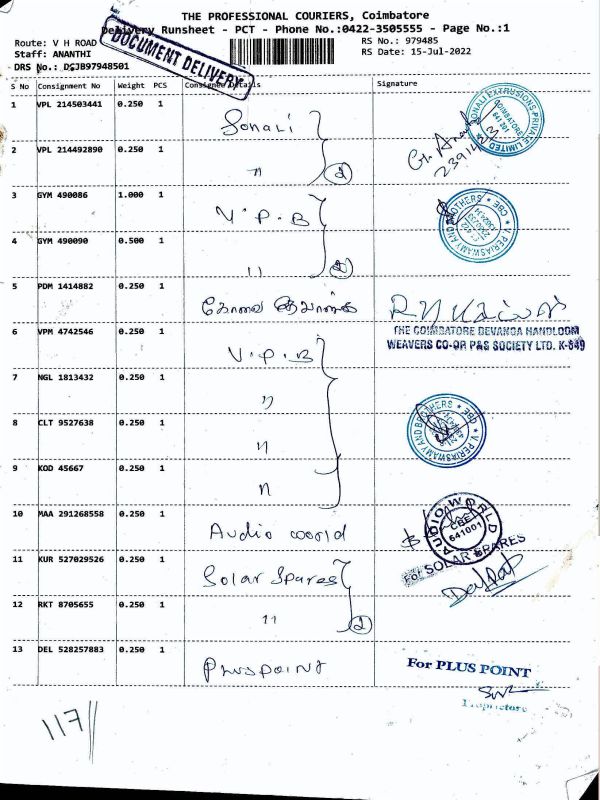 THE PROFESSIONAL COURIERS, Coimbatore
Delivery Runsheet - PCT - Phone No.:0422-3505555 - Page No.:1
Route: V H ROAD
RS No.: 979485
Staff: ANANTHI
RS Date: 15-Jul-2022
DRS No.: DCJB97948501
DOCUMENT DELIVERY
S No Consignment No Weight PCS Consignee Details Signature
1 VPL 214503441 0.250 1 Sonali
SONALI EXTRUSIONS PRIVATE LIMITED
COIMBATORE
2 VPL 214492890 0.250 1 " 2
3 GYM 490086 1.000 1 V.P.B
V PERIASWAMY AND BROTHERS * CBE *
4 GYM 490090 0.500 1 "
5 PDM 1414882 0.250 1 கோவை
THE COIMBATORE DEVANGA HANDLOOM
WEAVERS CO-OP P&S SOCIETY LTD. K-649
6 VPM 4742546 0.250 1 V.P.B
7 NGL 1813432 0.250 1 "
8 CLT 9527638 0.250 1 "
V PERIASWAMY AND BROTHERS * CBE *
9 KOD 45667 0.250 1 "
10 MAA 291268558 0.250 1 Audio world
AUDIO WORLD
CBE
641001
11 KUR 527029526 0.250 1 Solar Spares
For SOLAR SPARES
12 RKT 8705655 0.250 1 " 2
13 DEL 528257883 0.250 1 Plus point
For PLUS POINT
Proprietor
117